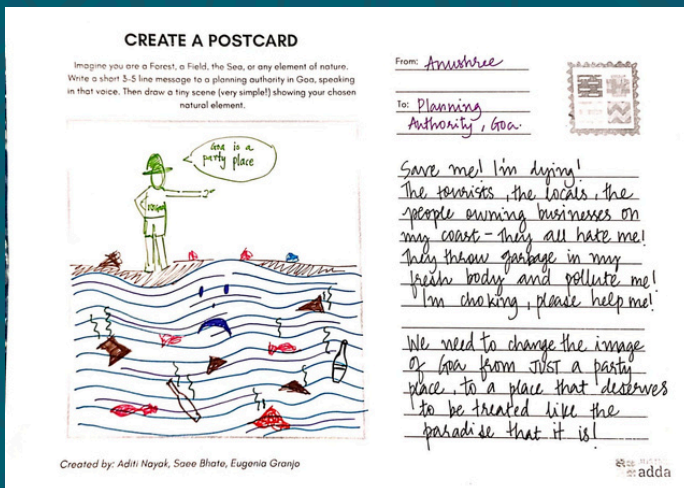 CREATE A POSTCARD
Imagine you are a Forest, a Field, the Sea, or any element of nature.
Write a short 3-5 line message to a planning authority in Goa, speaking
in that voice. Then draw a tiny scene (very simple!) showing your chosen
natural element.
Goa is a
party place
From: Anushree
To: Planning
Authority, Goa.
Save me! I'm dying!
The tourists, the locals, the
people owning businesses on
my coast - they all hate me!
They throw garbage in my
fresh body and pollute me!
I'm choking, please help me!
We need to change the image
of Goa from JUST a party
place, to a place that deserves
to be treated like the
paradise that it is!
Created by: Aditi Nayak, Saee Bhate, Eugenia Granjo
adda